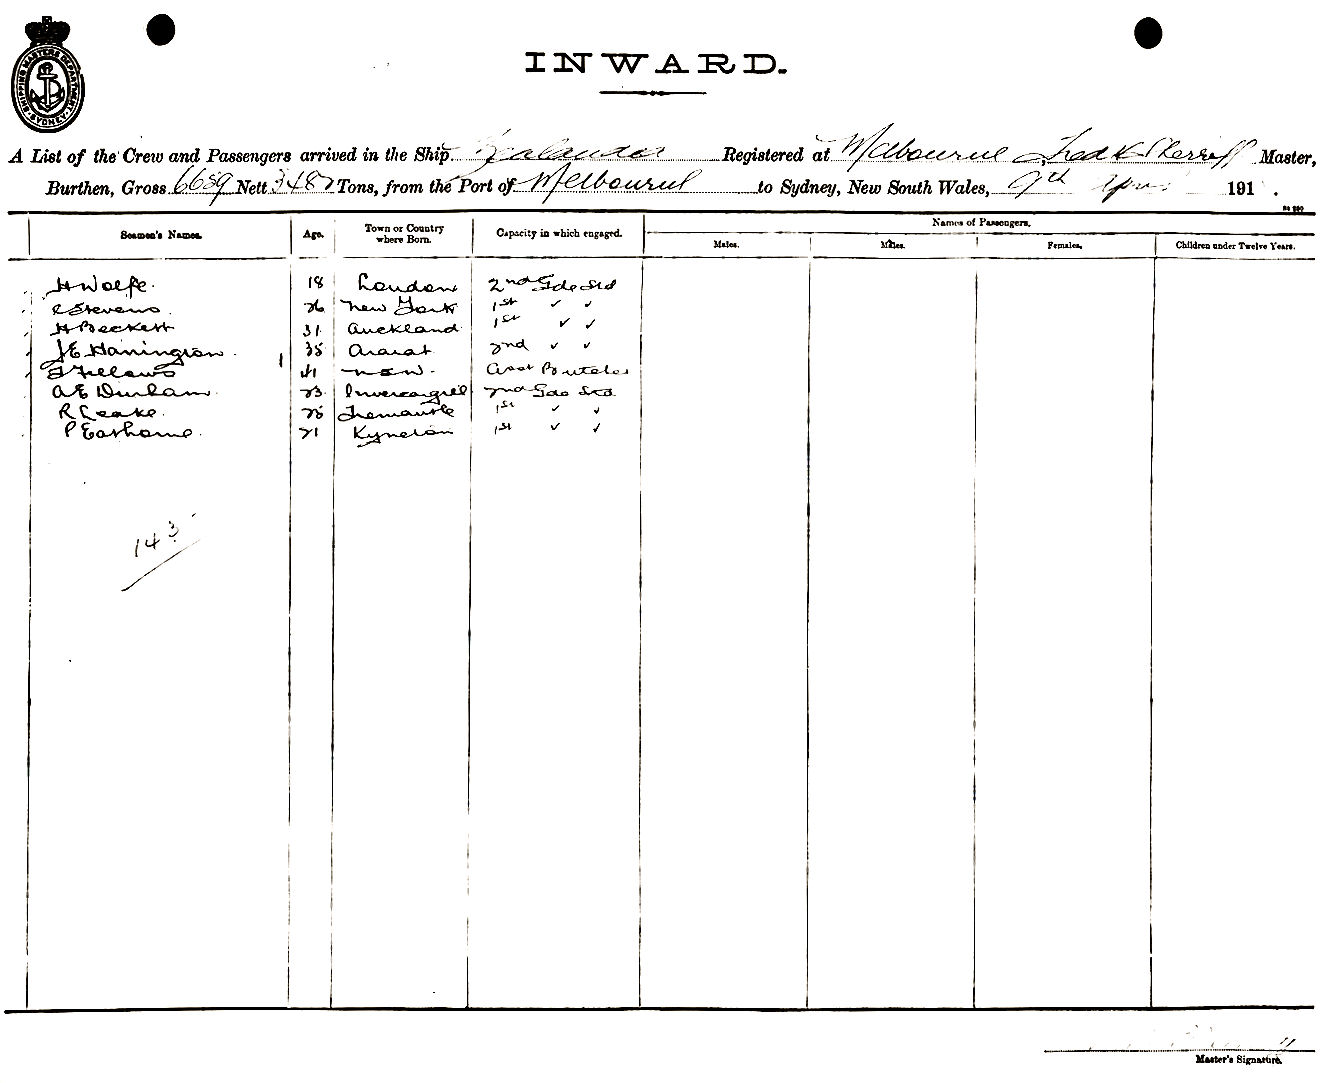 SHIPPING MASTERS DEPARTMENT SYDNEY
INWARD.
A List of the Crew and Passengers arrived in the Ship Zealandia Registered at Melbourne Fredk Sherriff Master,
Burthen, Gross 6659 Nett 348 Tons, from the Port of Melbourne to Sydney, New South Wales, 9th 191 .
Names of Passengers.
Seamen's Names. Age. Town or Country where Born. Capacity in which engaged. Males. Males. Females. Children under Twelve Years.
H Wolfe 18 London 2nd Gde Std
C Stevens 26 New York 1st ✓ ✓
H Beckett 31 Auckland 1st ✓ ✓
J E Harrington 35 Ararat 2nd ✓ ✓
Fellows 41 NSW. Asst Butcher
A E Durham 23 Invercargill 2nd Gde Std
R Leake 1st ✓ ✓
P 21 Kyneton 1st ✓ ✓
143
Master's Signature.